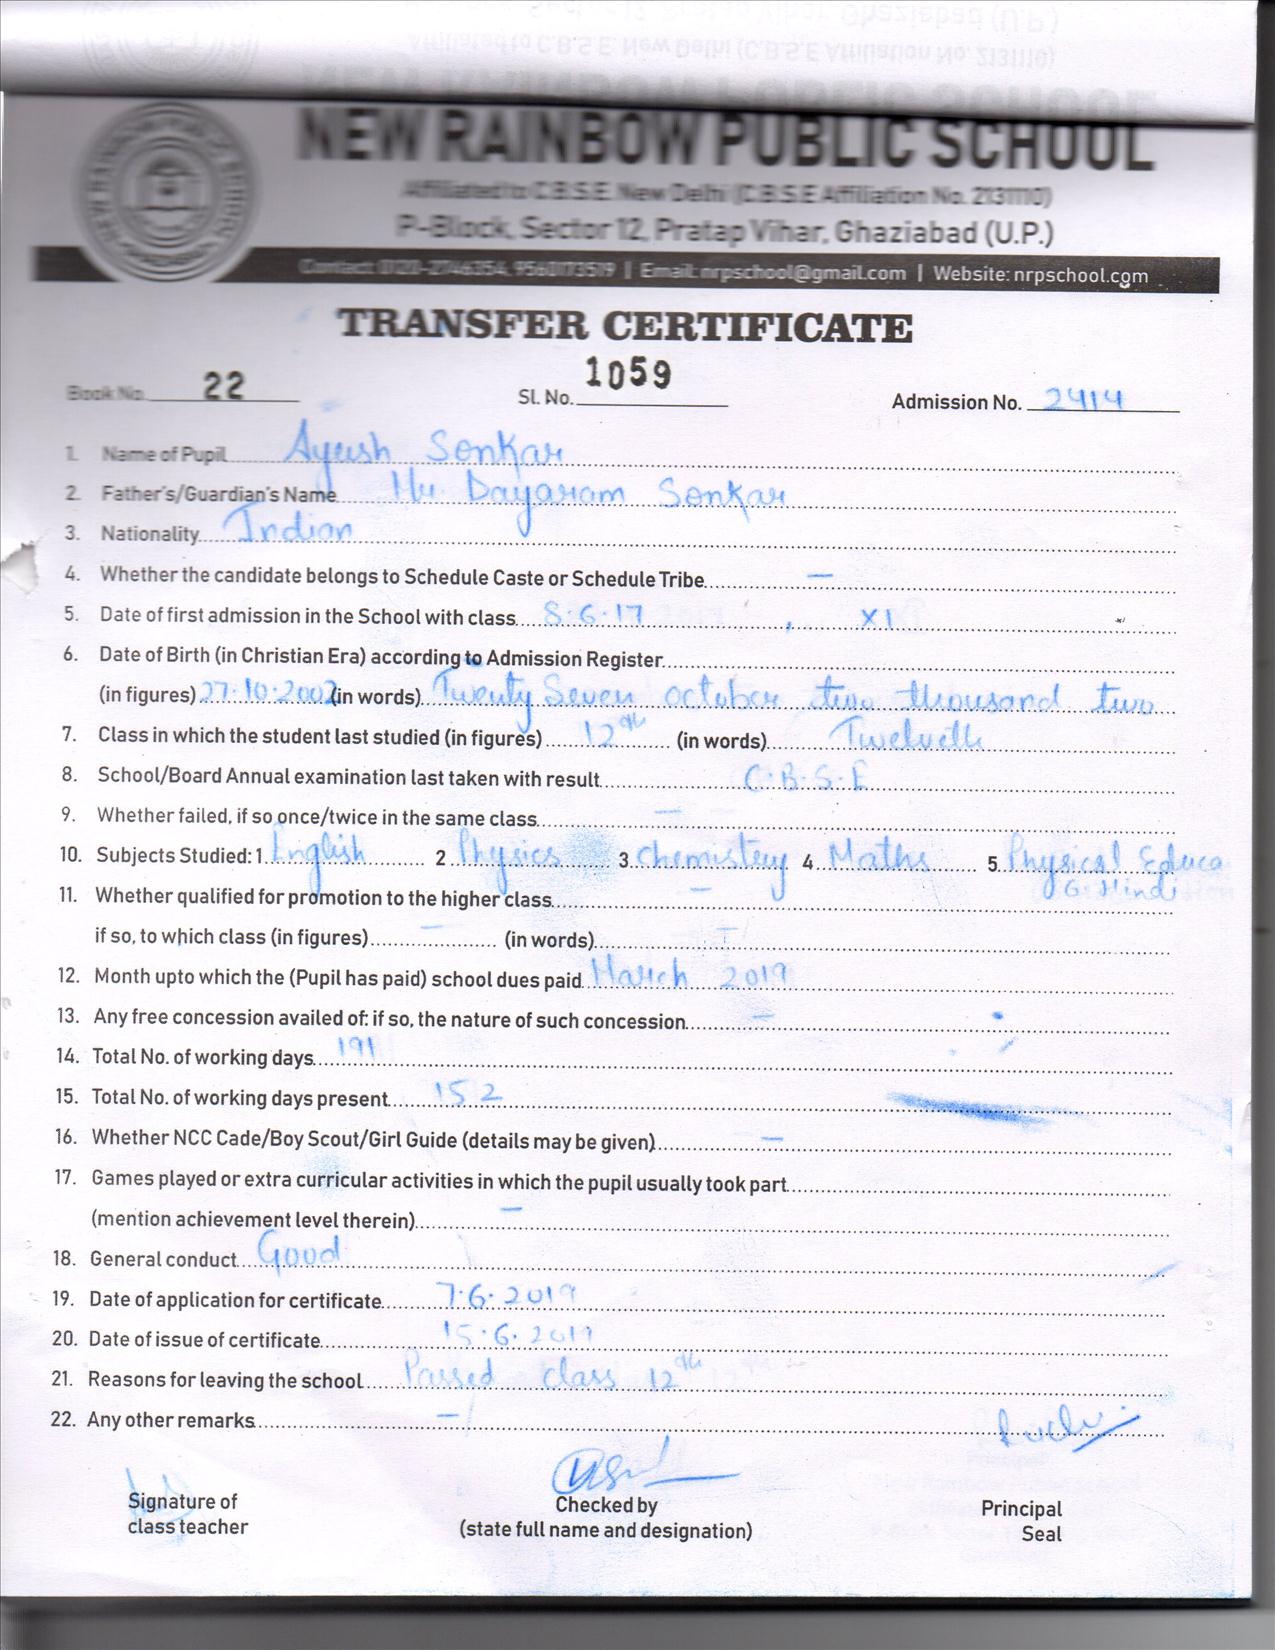 NEW RAINBOW PUBLIC SCHOOL
Affiliated to C.B.S.E. New Delhi (C.B.S.E Affiliation No. 2131110)
P-Block, Sector 12, Pratap Vihar, Ghaziabad (U.P.)
Contact: 9560173519 | Email: nrpschool@gmail.com | Website: nrpschool.com
TRANSFER CERTIFICATE
Book No. 22 Sl. No. 1059 Admission No. 2414
1. Name of Pupil Ayush Sonkar
2. Father's/Guardian's Name Mr. Dayaram Sonkar
3. Nationality Indian
4. Whether the candidate belongs to Schedule Caste or Schedule Tribe —
5. Date of first admission in the School with class 8.6.17, XI
6. Date of Birth (in Christian Era) according to Admission Register
(in figures) 27.10.2002 (in words) Twenty Seven October two thousand two
7. Class in which the student last studied (in figures) 12th (in words) Twelveth
8. School/Board Annual examination last taken with result C.B.S.E
9. Whether failed, if so once/twice in the same class —
10. Subjects Studied: 1 English 2 Physics 3 Chemistry 4 Maths 5 Physical Educa
6. Hindi
11. Whether qualified for promotion to the higher class —
if so, to which class (in figures) — (in words) —
12. Month upto which the (Pupil has paid) school dues paid March 2019
13. Any free concession availed of: if so, the nature of such concession —
14. Total No. of working days 191
15. Total No. of working days present 152
16. Whether NCC Cade/Boy Scout/Girl Guide (details may be given) —
17. Games played or extra curricular activities in which the pupil usually took part
(mention achievement level therein) —
18. General conduct Good
19. Date of application for certificate 7.6.2019
20. Date of issue of certificate 15.6.2019
21. Reasons for leaving the school Passed class 12th
22. Any other remarks —
Signature of
class teacher
Checked by
(state full name and designation)
Principal
Seal